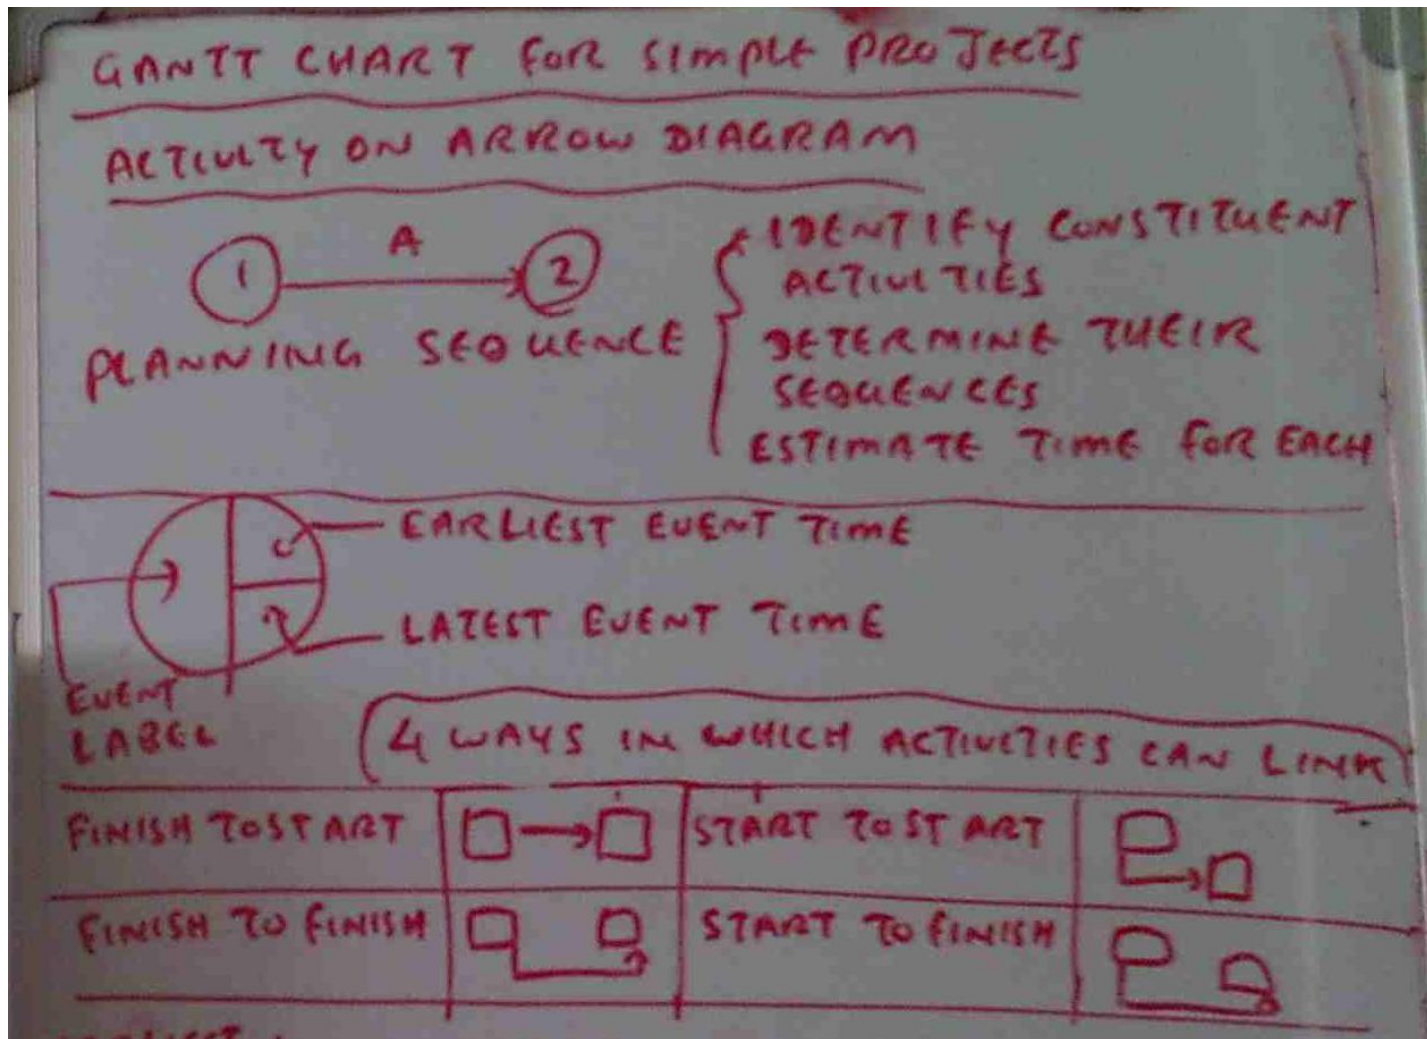 GANTT CHART FOR SIMPLE PROJECTS
ACTIVITY ON ARROW DIAGRAM
1 A 2
PLANNING SEQUENCE
IDENTIFY CONSTITUENT
ACTIVITIES
DETERMINE THEIR
SEQUENCES
ESTIMATE TIME FOR EACH
EARLIEST EVENT TIME
LATEST EVENT TIME
EVENT
LABEL
4 WAYS IN WHICH ACTIVITIES CAN LINK
FINISH TO START
START TO START
FINISH TO FINISH
START TO FINISH